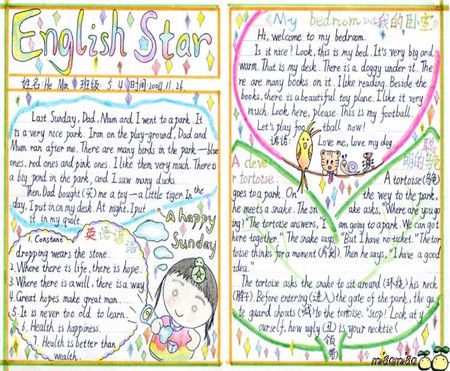 English Star
姓名: He Min 班级 5.4 时间 2004.11.26.
Last Sunday, Dad, Mum and I went to a park. It
is a very nice park. I ran on the play-ground, Dad and
Mum ran after me. There are many birds in the park-blue
ones, red ones and pink ones. I like them very much. There is
a big pond in the park, and I saw many ducks.
Then Dad bought (买) me a toy-a little tiger. In the
day, I put it on my desk. At night, I put
it in my quilt.
A happy
Sunday
英语谚语
1. Constant
dropping wears the stone.
2. Where there is life, there is hope.
3. Where there is a will, there is a way
4. Great hopes make great man.
5. It is never too old to learn.
6. Health is happiness.
7. Health is better than
wealth.
My bedroom 我的卧室
Hi, welcome to my bedroom.
Is it nice? Look, this is my bed. It's very big and
warm. That is my desk. There is a doggy under it. The
re are many books on it. I like reading. Beside the
books, there is a beautiful toy plane. I like it very
much. Look here, please. This is my football.
Let's play football now!
谚语: Love me, love my dog.
A clever tortoise
聪明的乌龟
A tortoise (乌龟)
goes to a park. On the way to the park,
he meets a snake. The snake asks, "Where are you go
ing?" The tortoise answers, "I am going to a park. We can go t
here together." The snake says, "But I have no ticket." The tor
toise thinks for a moment (片刻). Then he says, "I have a good
idea."
The tortoise asks the snake to sit around (环绕) his neck
(脖子). Before entering (进入) the gate of the park, the ga
te guard shouts (喊) to the tortoise. "Stop! Look at y
ourself, how ugly (丑) is your necktie (
领带)
miaomiao